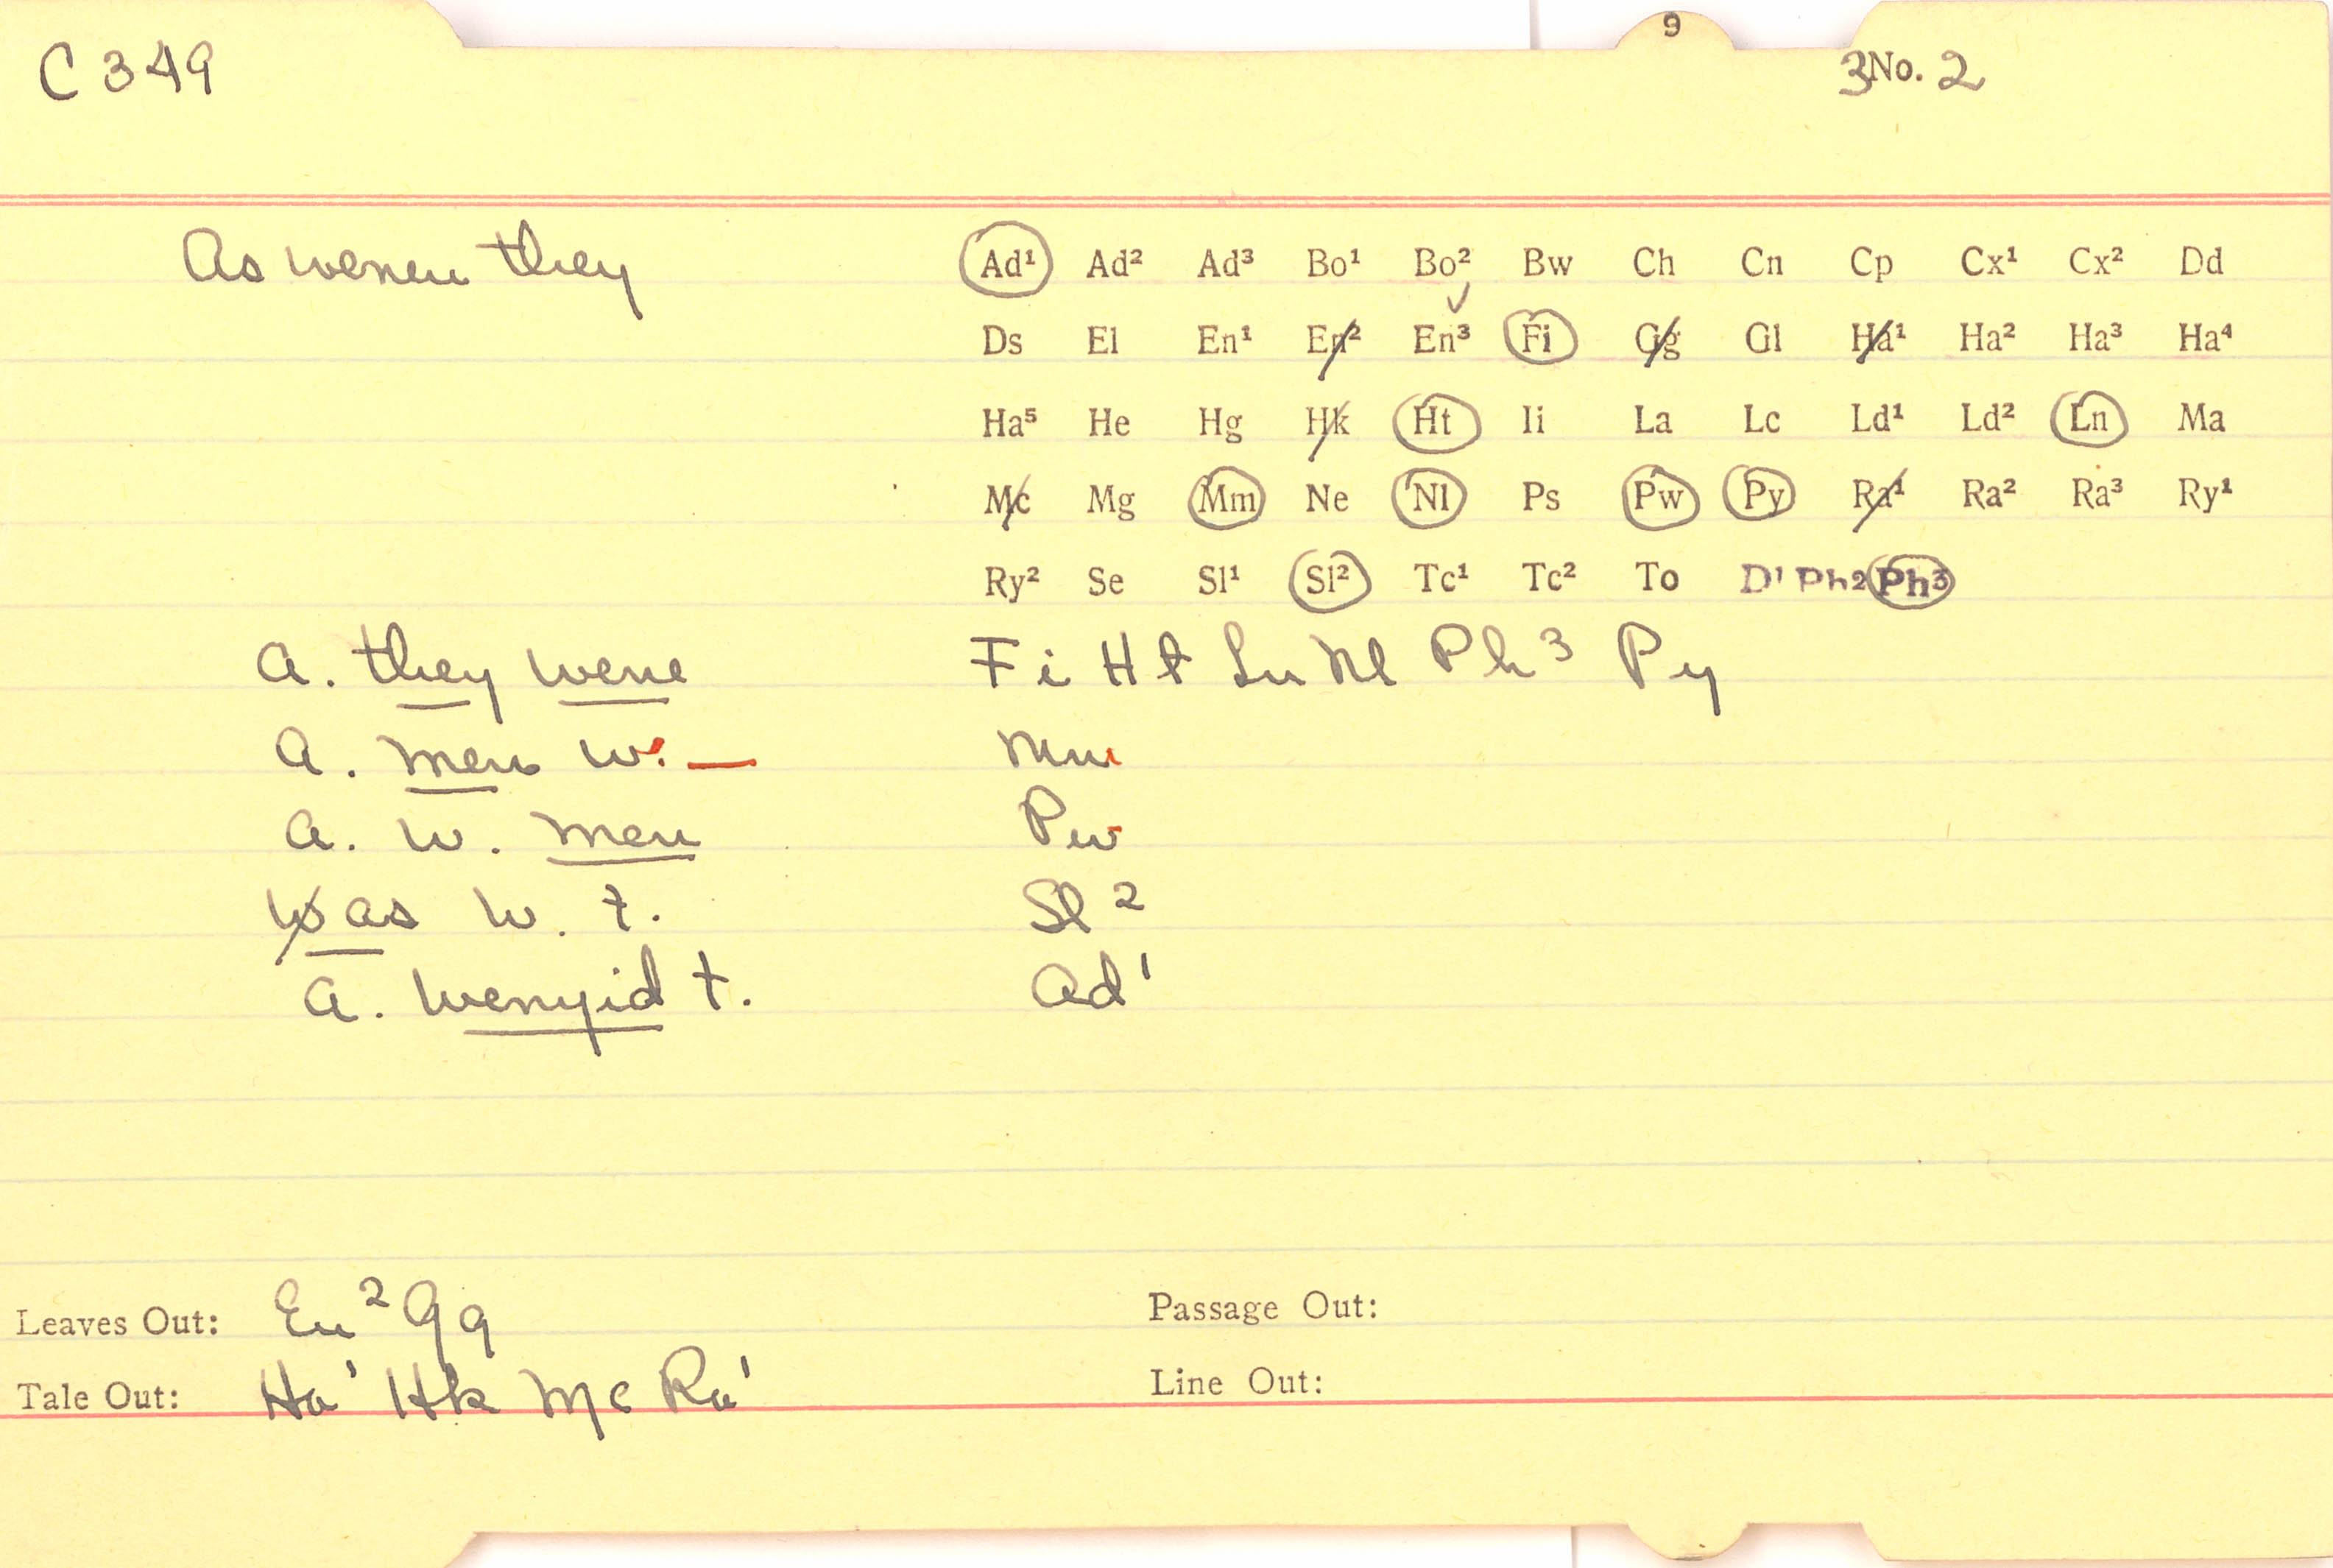 9
C 349
3No. 2
As wenen they
Ad¹ Ad² Ad³ Bo¹ Bo² Bw Ch Cn Cp Cx¹ Cx² Dd
Ds El En¹ En² En³ Fi Gg Gl Ha¹ Ha² Ha³ Ha⁴
Ha⁵ He Hg Hk Ht Ii La Lc Ld¹ Ld² Ln Ma
Mc Mg Mm Ne Nl Ps Pw Py Ra¹ Ra² Ra³ Ry¹
Ry² Se Sl¹ Sl² Tc¹ Tc² To D¹ Ph2 Ph3
a. they wene Fi Ht Ln Nl Ph³ Py
a. men w. — Mm
a. w. men Pw
was w. t. Sl²
a. wenyid t. Ad¹
Leaves Out: En² Gg
Passage Out:
Tale Out: Ha¹ Hk Mc Ra¹
Line Out: